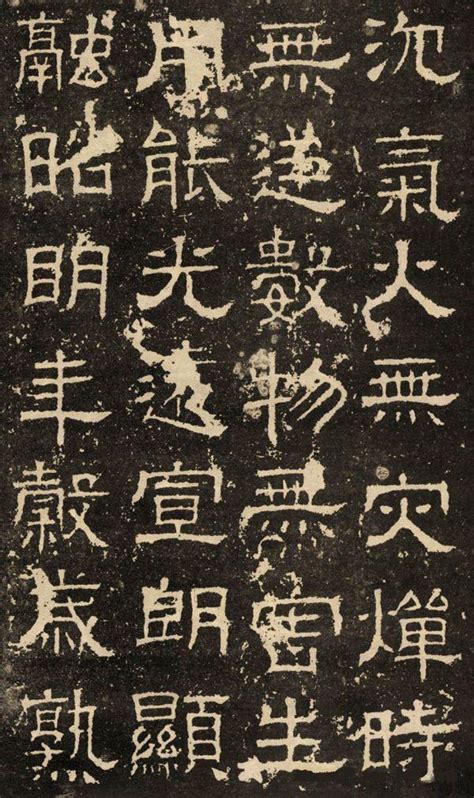 沉氣火無灾燀時
無逆數物無害生
用能光遠宣朗顯
融昭明年穀歲孰